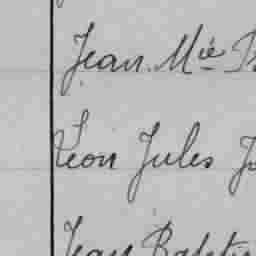 Jean Mie
Léon Jules
Jean Baptis